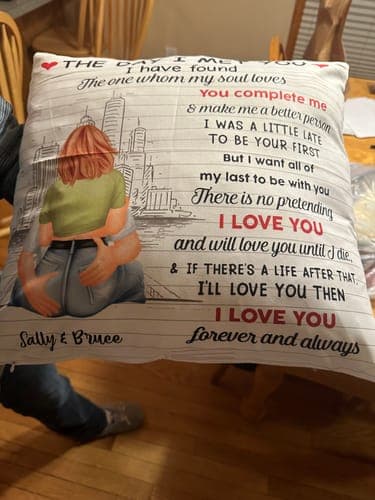 THE DAY I MET YOU
I have found
The one whom my soul loves
You complete me
& make me a better person
I WAS A LITTLE LATE
TO BE YOUR FIRST
But I want all of
my last to be with you
There is no pretending
I LOVE YOU
and will love you until I die,
& IF THERE'S A LIFE AFTER THAT,
I'LL LOVE YOU THEN
I LOVE YOU
Forever and always
Sally & Bruce